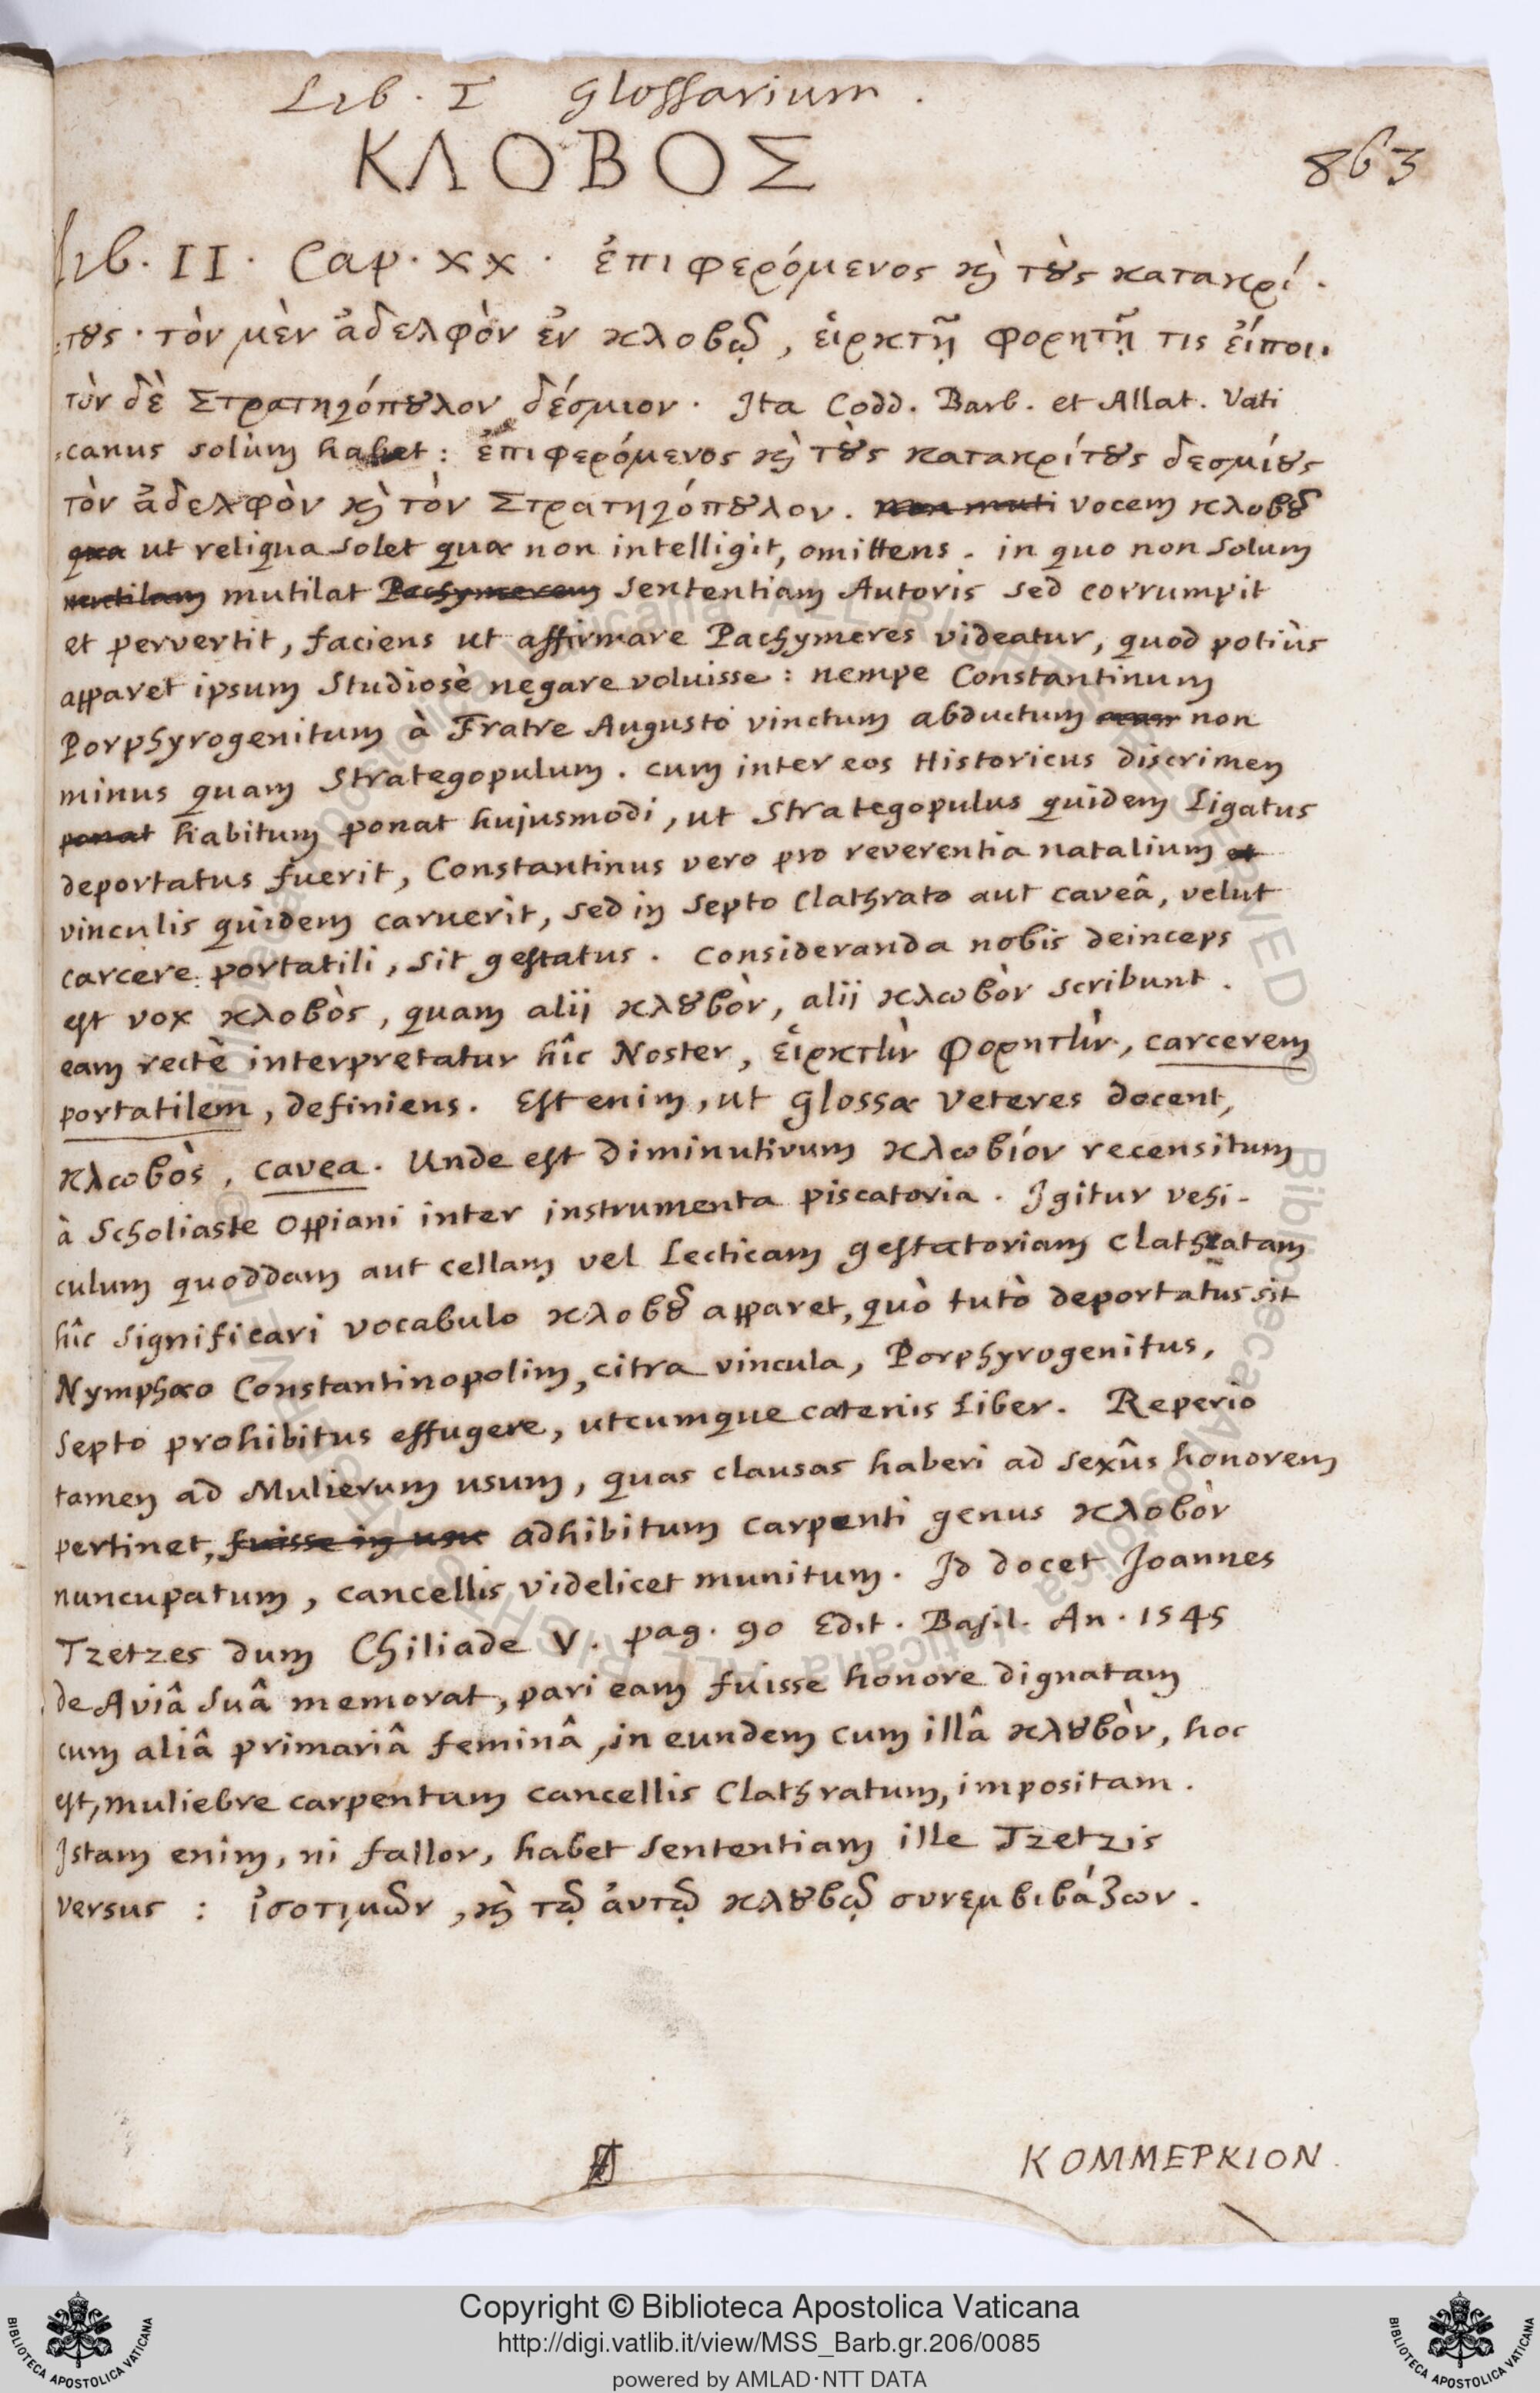 Lib. I Glossarium.
ΚΛΟΒΟΣ
863
Lib. II. Cap. XX. ἐπιφερόμενος κὶ τοὺς κατακρί-
τους. τὸν μὲν ἀδελφὸν ἐν κλοβῷ, εἱρκτῇ φορητῇ τις εἴποι,
τὸν δὲ Στρατηγόπουλον δέσμιον. Ita Codd. Barb. et Allat. Vati
canus solùm habet: ἐπιφερόμενος κὶ τοὺς κατακρίτους δεσμίους
τὸν ἀδελφὸν κὶ τὸν Στρατηγόπουλον. non muti vocem κλοβοῦ
qua ut reliqua solet quæ non intelligit, omittens. in quo non solum
mutilam mutilat Pachymerem sententiam Autoris sed corrumpit
et pervertit, faciens ut affirmare Pachymeres videatur, quod potiùs
apparet ipsum studiosè negare voluisse: nempe Constantinum
Porphyrogenitum à Fratre Augusto vinctum abductum non
minus quam Strategopulum. cum inter eos Historicus discrimen
ponat habitum ponat hujusmodi, ut Strategopulus quidem Ligatus
deportatus fuerit, Constantinus vero pro reverentia natalium et
vinculis quidem caruerit, sed in septo Clathrato aut caveâ, velut
carcere portatili, sit gestatus. Consideranda nobis deinceps
est vox κλοβὸς, quam alii κλουβὸν, alii κλωβὸν scribunt.
eam rectè interpretatur hîc Noster, εἱρκτὴν φορητὴν, carcerem
portatilem, definiens. Est enim, ut Glossæ Veteres docent,
κλωβὸς, cavea. Unde est Diminutivum κλωβίον recensitum
à Scholiaste Oppiani inter instrumenta piscatoria. Igitur vehi-
culum quoddam aut cellam vel Lecticam gestatoriam clathratam
hîc significari vocabulo κλοβοῦ apparet, quò tutò deportatus sit
Nymphæo Constantinopolim, citra vincula, Porphyrogenitus,
septo prohibitus effugere, utcumque catenis Liber. Reperio
tamen ad Mulierum usum, quas clausas haberi ad sexûs honorem
pertinet, fuisse in usu adhibitum carpenti genus κλοβὸν
nuncupatum, cancellis videlicet munitum. Id docet Joannes
Tzetzes dum Chiliade V. pag. 90 Edit. Basil. An. 1545
de Aviâ suâ memorat, pari eam fuisse honore dignatam
cum aliâ primariâ feminâ, in eundem cum illâ κλουβὸν, hoc
est, muliebre carpentum cancellis Clathratum, impositam.
Istam enim, ni fallor, habet sententiam ille Tzetzis
versus : ἰσοτιμῶν, κὶ τῷ ἀυτῷ κλουβῷ συνεμβιβάζων.
ΚΟΜΜΕΡΚΙΟΝ.
Copyright © Biblioteca Apostolica Vaticana
http://digi.vatlib.it/view/MSS_Barb.gr.206/0085
powered by AMLAD·NTT DATA
BIBLIOTECA APOSTOLICA VATICANA
BIBLIOTECA APOSTOLICA VATICANA